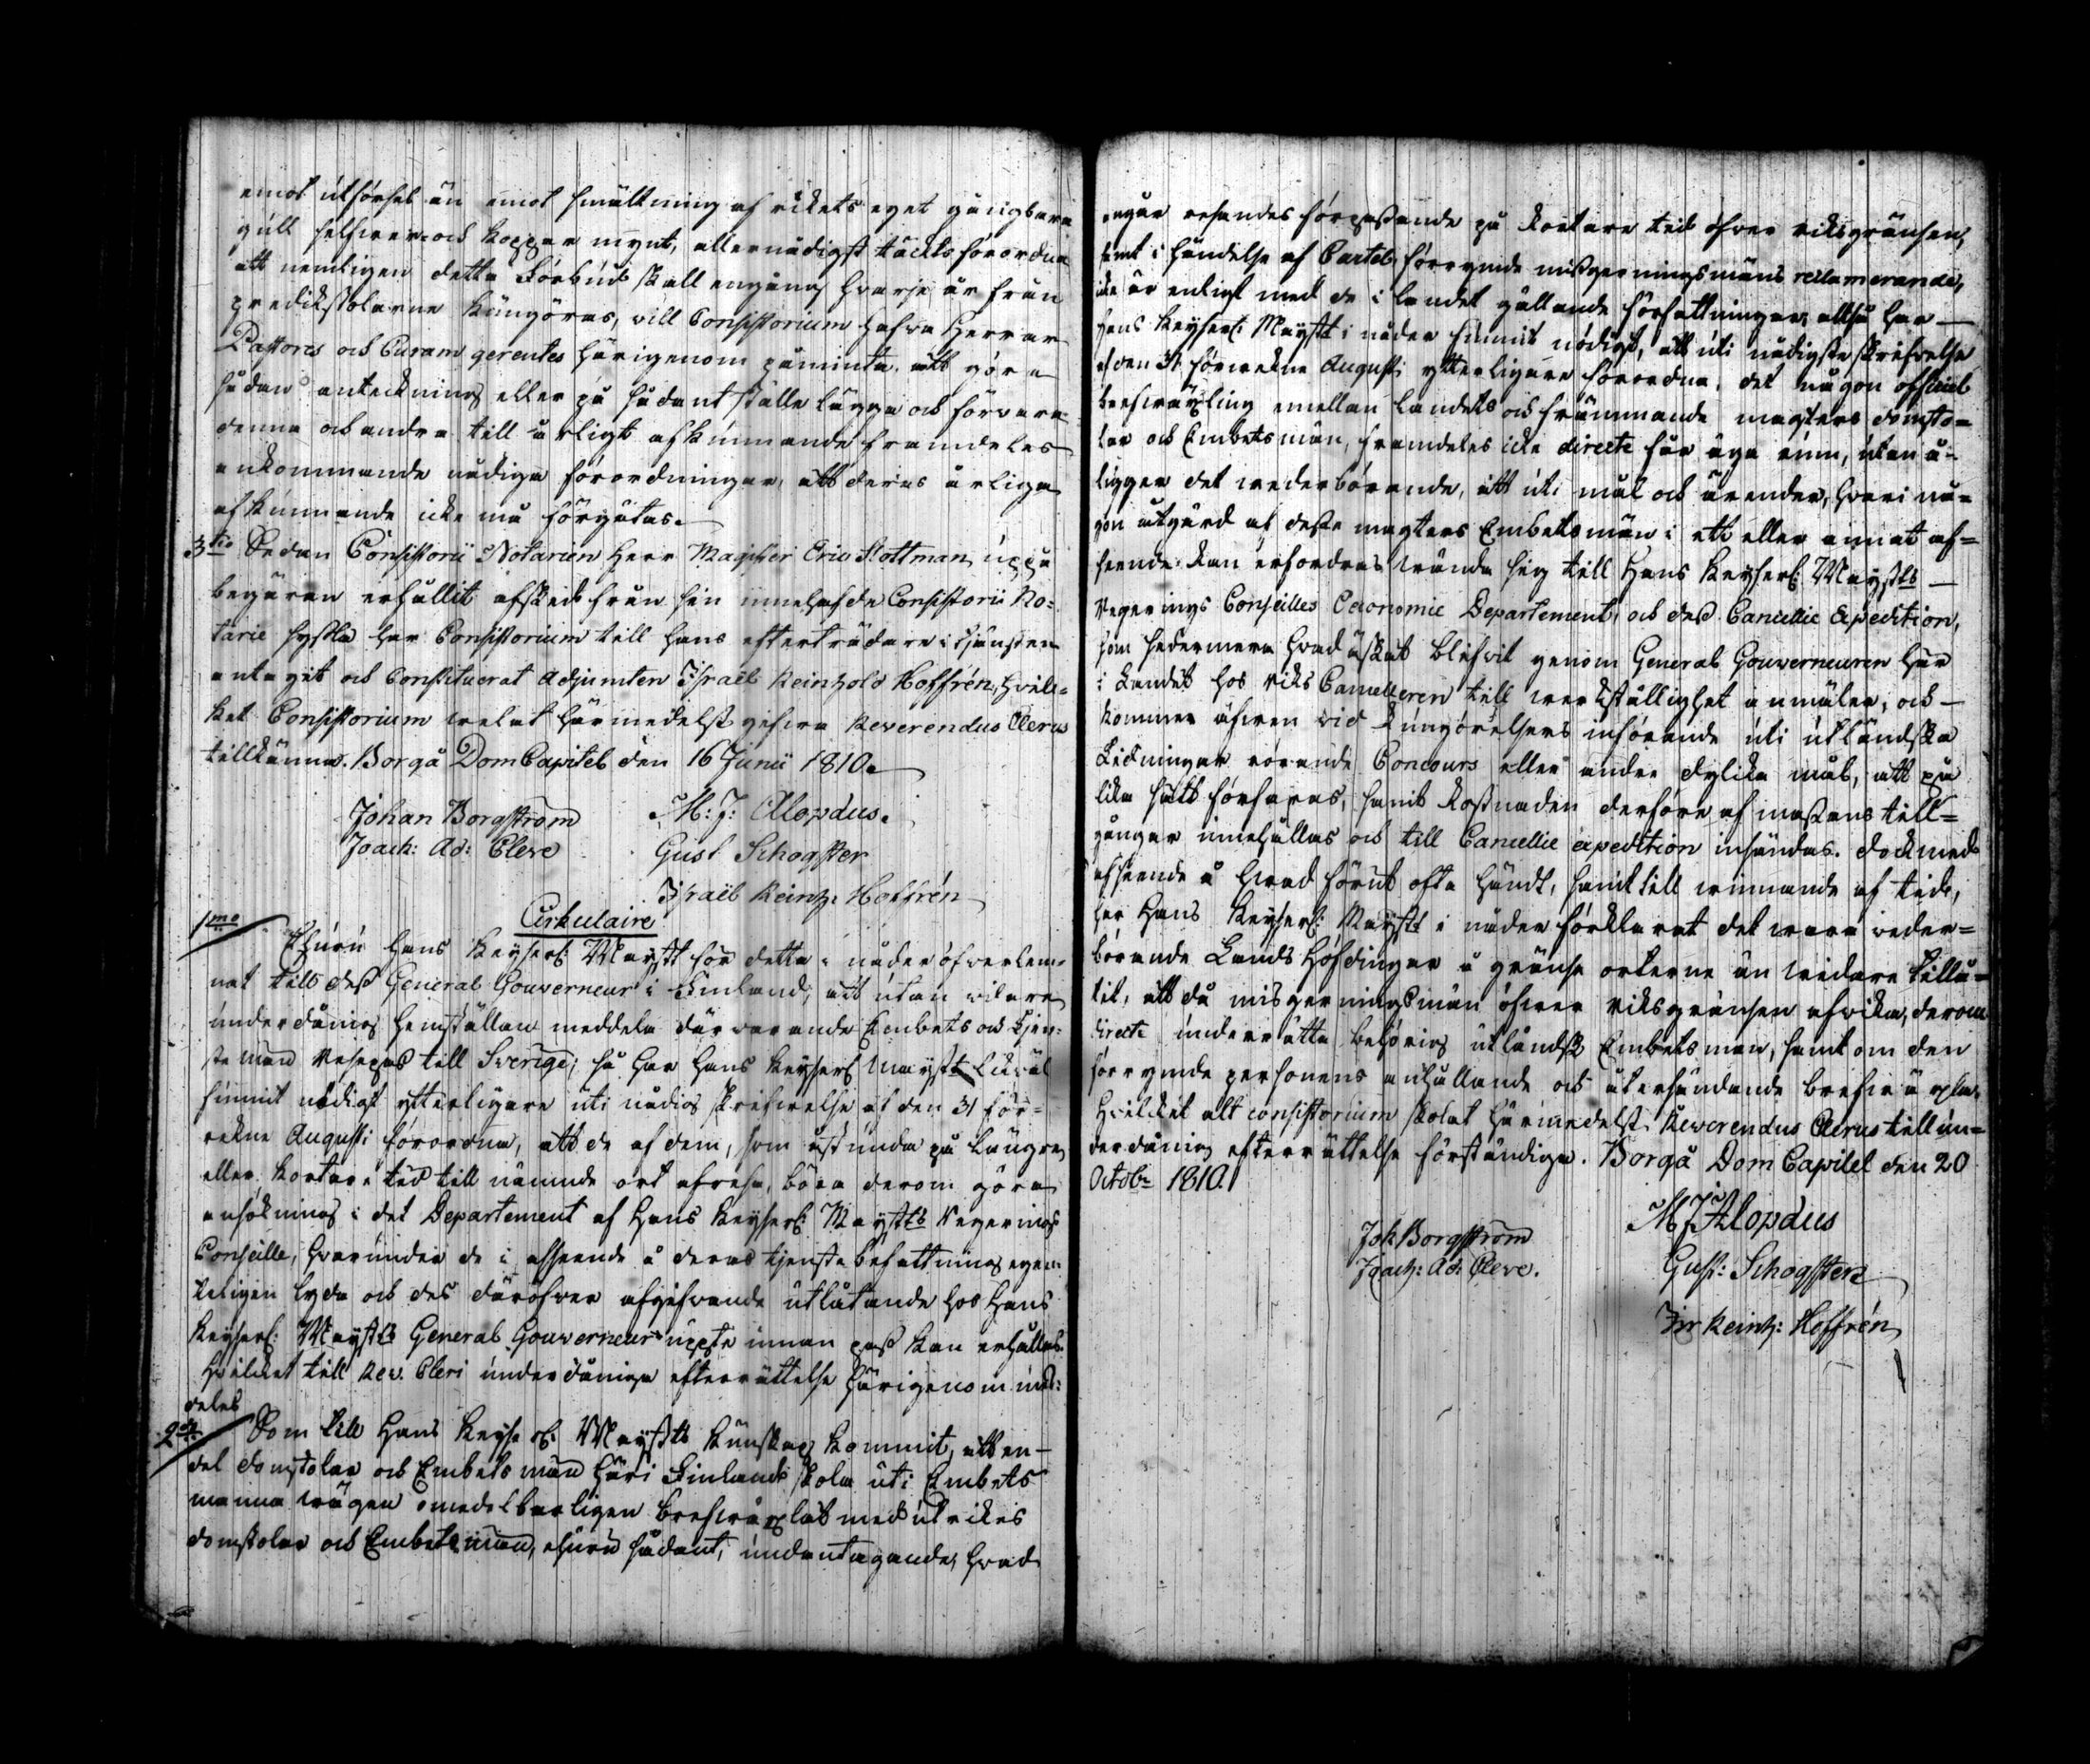 emot utförsel än emot smältning af rikets eget gångbara
gull silfwer och koppar mynt, allernådigst täckts förordna
att nemligen detta Förbud skall engång hwarje år från
predikstolarne kungöras, vill Consistorium hafwa Herrar
Pastores och Curam gerentes härigenom påminta, att göra
sådan anteckning eller på sådant ställe lägga och förwara
denna och andra till årligt afkunnande framdeles
ankommande nådiga förordningar, att deras årliga
afkunnande icke må förgätas.
3tio Sedan Consistorii Notarien Herr Magister Eric Stottman uppå
begäran erhållit afsked från sin innehafde Consistorii No-
tarie syssla har Consistorium till hans efterträdare i tjensten
antagit och Constituerat Adjuncten Israël Reinhold Hoffrén, hvil-
ket Consistorium welat härmedelst gifwa Reverendus Clerus
tillkänna. Borgå Dom Capitel den 16 Junii 1810.
Johan Borgström M: J: Alopæus.
Joach: Ad: Cleve Gust Schogster
Israël Reinh: Hoffrén
Cirkulaire
1mo Ehuru Hans Keyserl: Mayst för detta i nåder öfwerlem-
nat till dess General Gouverneur i Finland, att utan widare
underdånig hemställan meddela därwarande Embets och tjen-
ste män Resepass till Sverige; så har Hans Keyserl Mayst likwäl
funnit nödigt ytterligare uti nådig skrifwelse af den 31 för-
rekne Augusti förordna, att de af dem, som åstunda på längre
eller kortare tid till nämnde ort afresa, böra derom göra
ansökning i det Departement af Hans Keyserl: Maystts Regerings
Conseille, hwarunder de i afseende å deras tjenste befattning egen-
teligen lyda och des däröfwer afgifwande utlåtande hos Hans
Keyserl: Maystts General Gouverneur uppte innan pass kan erhållas.
Hvilket till Rev. Cleri underdåniga efterrättelse härigenom med-
deles
2do Som till Hans Keyserl: Maystts kunskap kommit, att en-
del domstolar och Embetsmän här i Finland skola uti Embets
manna wägen omedelbarligen brefwäxlat med utrikes
domstolar och Embetsmän, ehuru sådant, undantagande, hvad
angår resandes förpassande på kortare tid öfwer riksgränsen,
samt i händelse af Cartel, förrymde missgerningsmäns reclamerande,
icke är enligt med de i landet gällande författningar, alltså har
Hans Keyserl: Mayst i nåder funnit nödigt, att uti nådigste skrifwelse
af den 31 förwekne Augusti ytterligare förordna, det någon officiel
brefwäxling emellan landets och främmande magters domsto-
lar och Embetsmän, framdeles icke directe får äga rum, utan å-
ligger det wederbörande, att uti mål och ärender, hvari nå-
gon åtgärd af desse magters Embetsmän i ett eller annat af-
seende kan erfordras wända sig till Hans Keyserl: Maystts
Regerings Conseilles Oeconomie Departement, och dess Cancellie Expedition,
som sedermera hvad äskat blifwit genom General Gouverneuren här
i Landet hos Riks Cancelleren till werkställighet anmäler, och
kommer äfwen wid kungörelsers införande uti utländska
tidningar rörande Concours eller andre dylika mål, att på
lika sätt förfaras, samt kostnaden derföre af massans till-
gångar innehållas och till Cancellie expedition insändas. Dock med
afseende å hwad förut ofta händt, samt till winnande af tid,
har Hans Keyserl: Mayst i nåder förklarat det wara weder-
börande Lands Höfdingar å gränse orterne än widare tillå-
tit, att då misgerningsmän öfwer riksgränsen afwika, derom
directe underrätta behörig utländsk Embetsman, samt om den
förrymde personens anhållande och återsändande brefwäxla.
Hvilket alt consistorium skolat härmedelst Reverendus Clerus till un-
derdånig efterrättelse förständiga. Borgå Dom Capitel den 20
Octobr 1810.
M J Alopæus
Joh Borgström
Joach: Ad: Cleve. Gust: Schogster
Isr Reinh: Hoffrén